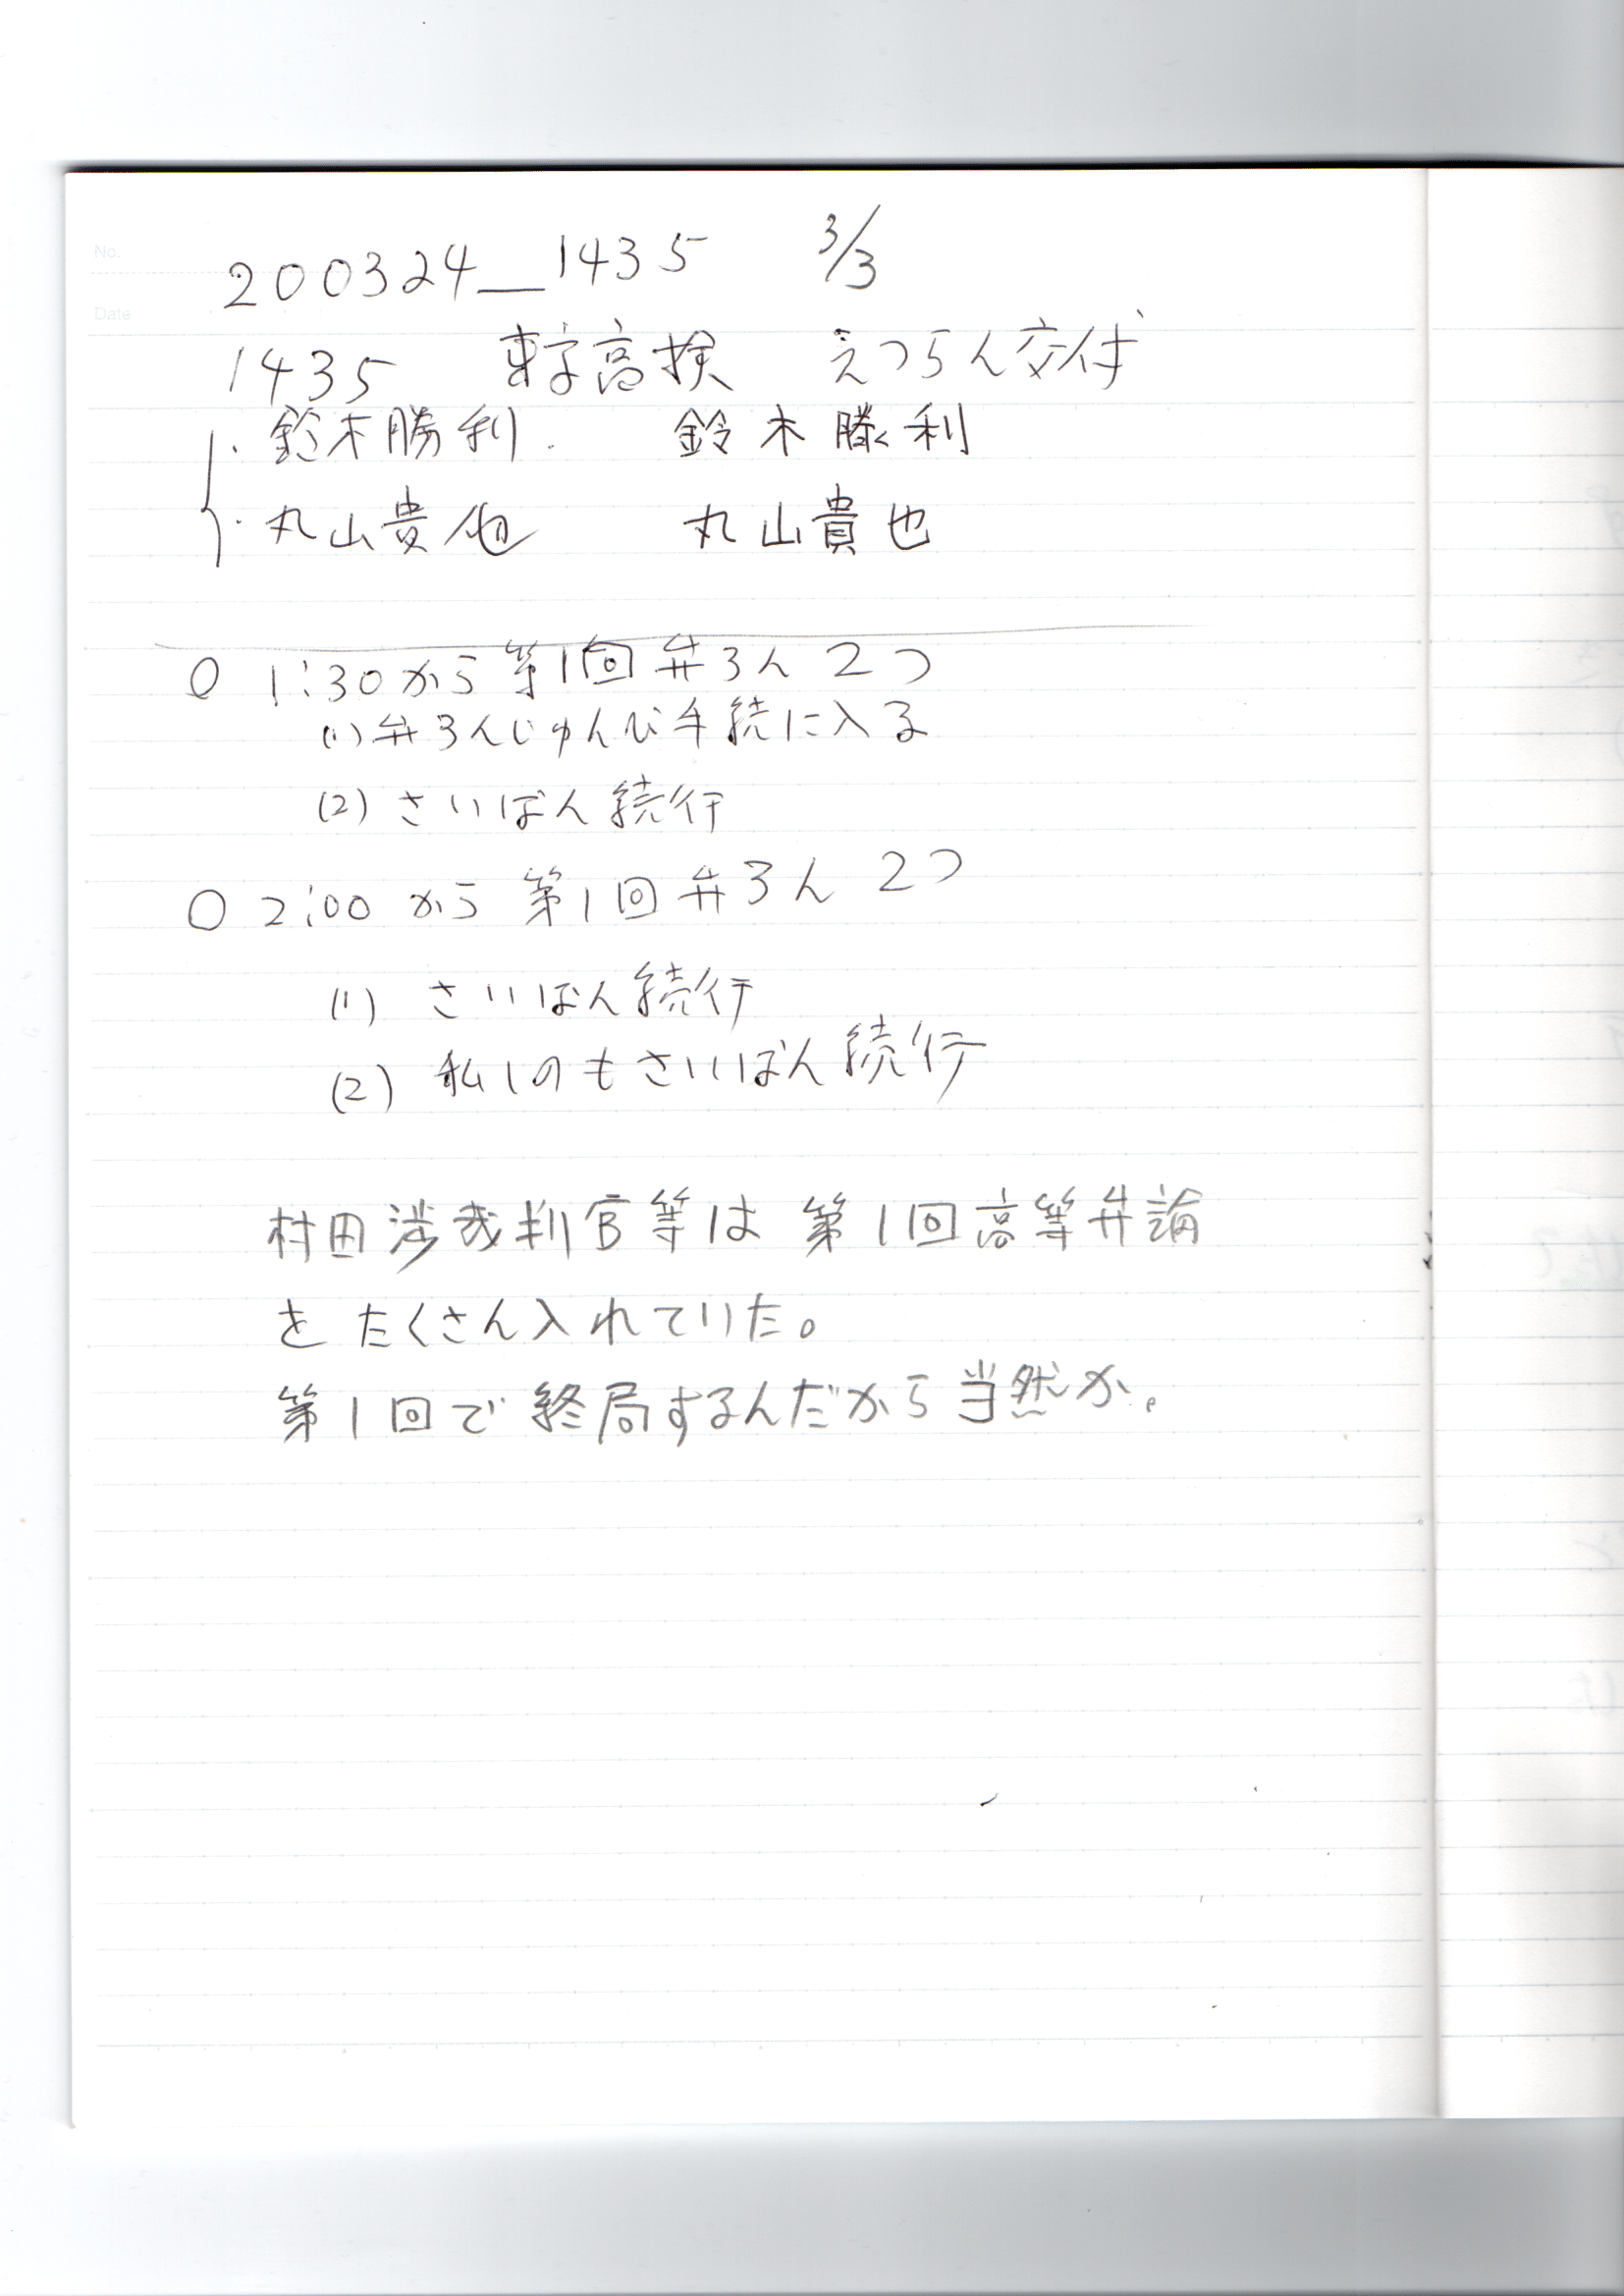 No.
Date
200324_1435 3/3
1435 東京高検 えつらん交付
・鈴木勝利. 鈴木勝利
・丸山貴也 丸山貴也
○ 1:30から第1回弁ろん 2つ
(1) 弁ろんじゅんび手続に入る
(2) さいばん続行
○ 2:00から 第1回弁ろん 2つ
(1) さいばん続行
(2) 私しのもさいばん続行
村田渉裁判官等は 第1回高等弁論
を たくさん入れていた。
第1回で終局するんだから当然か。